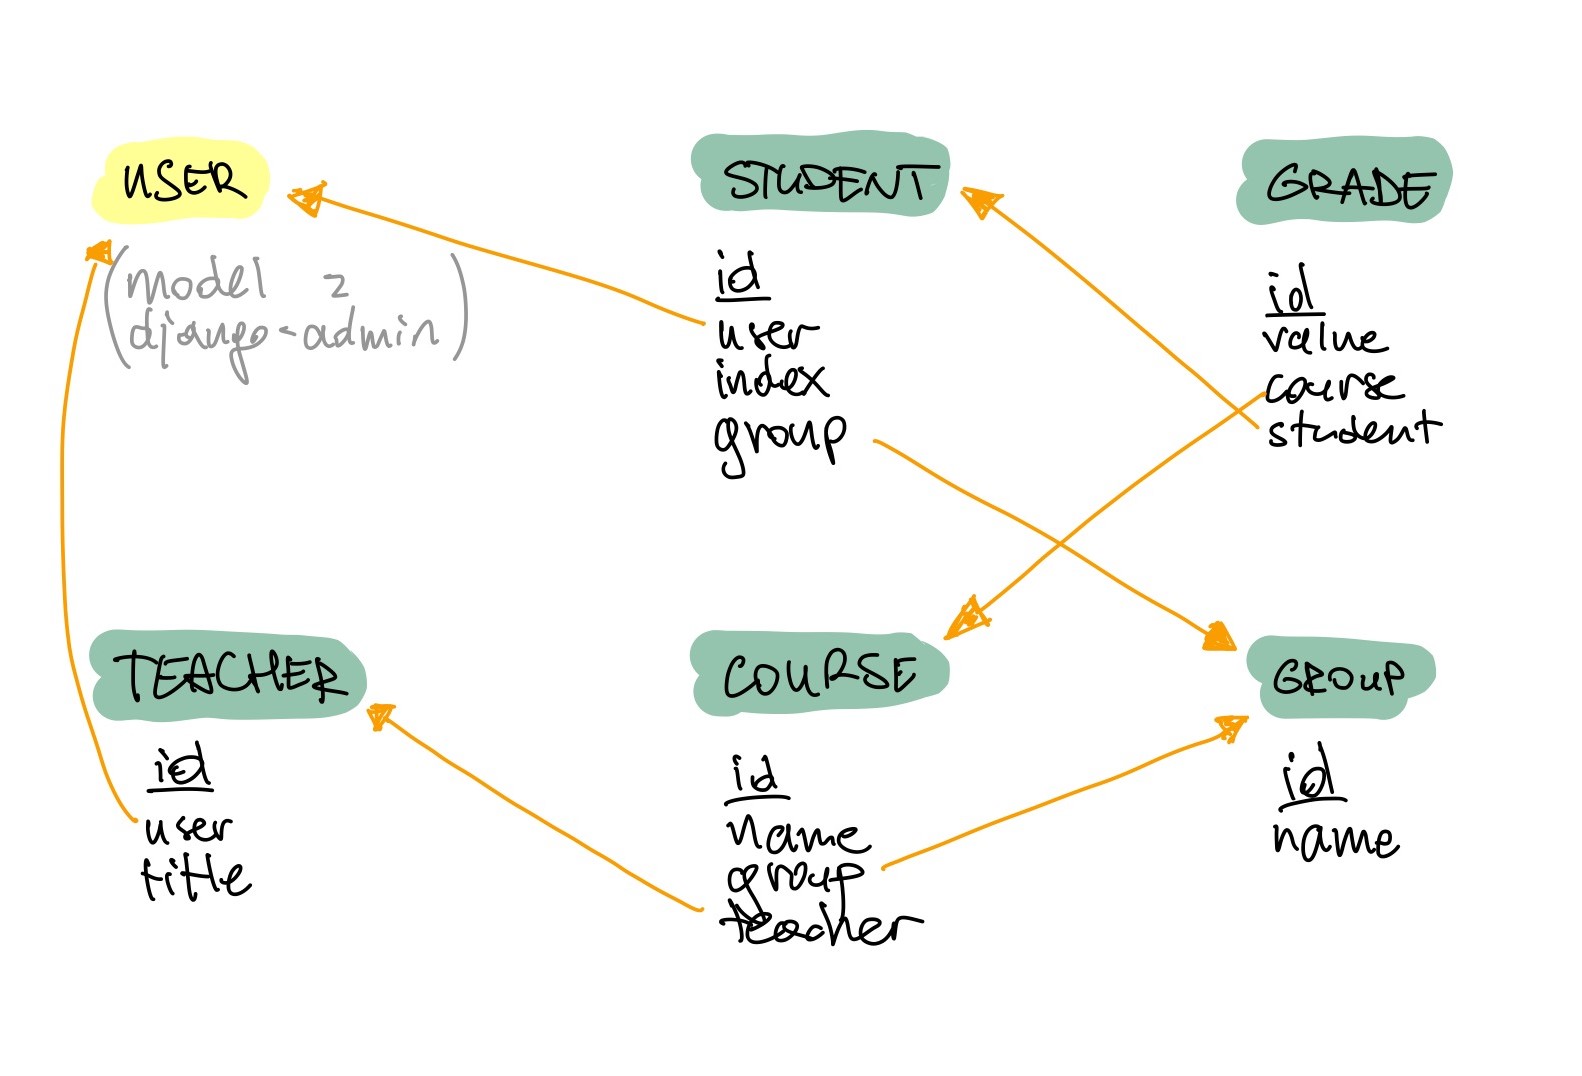 USER
(model z
django-admin)
STUDENT
id
user
index
group
GRADE
id
value
course
student
TEACHER
id
user
title
COURSE
id
name
group
teacher
GROUP
id
name